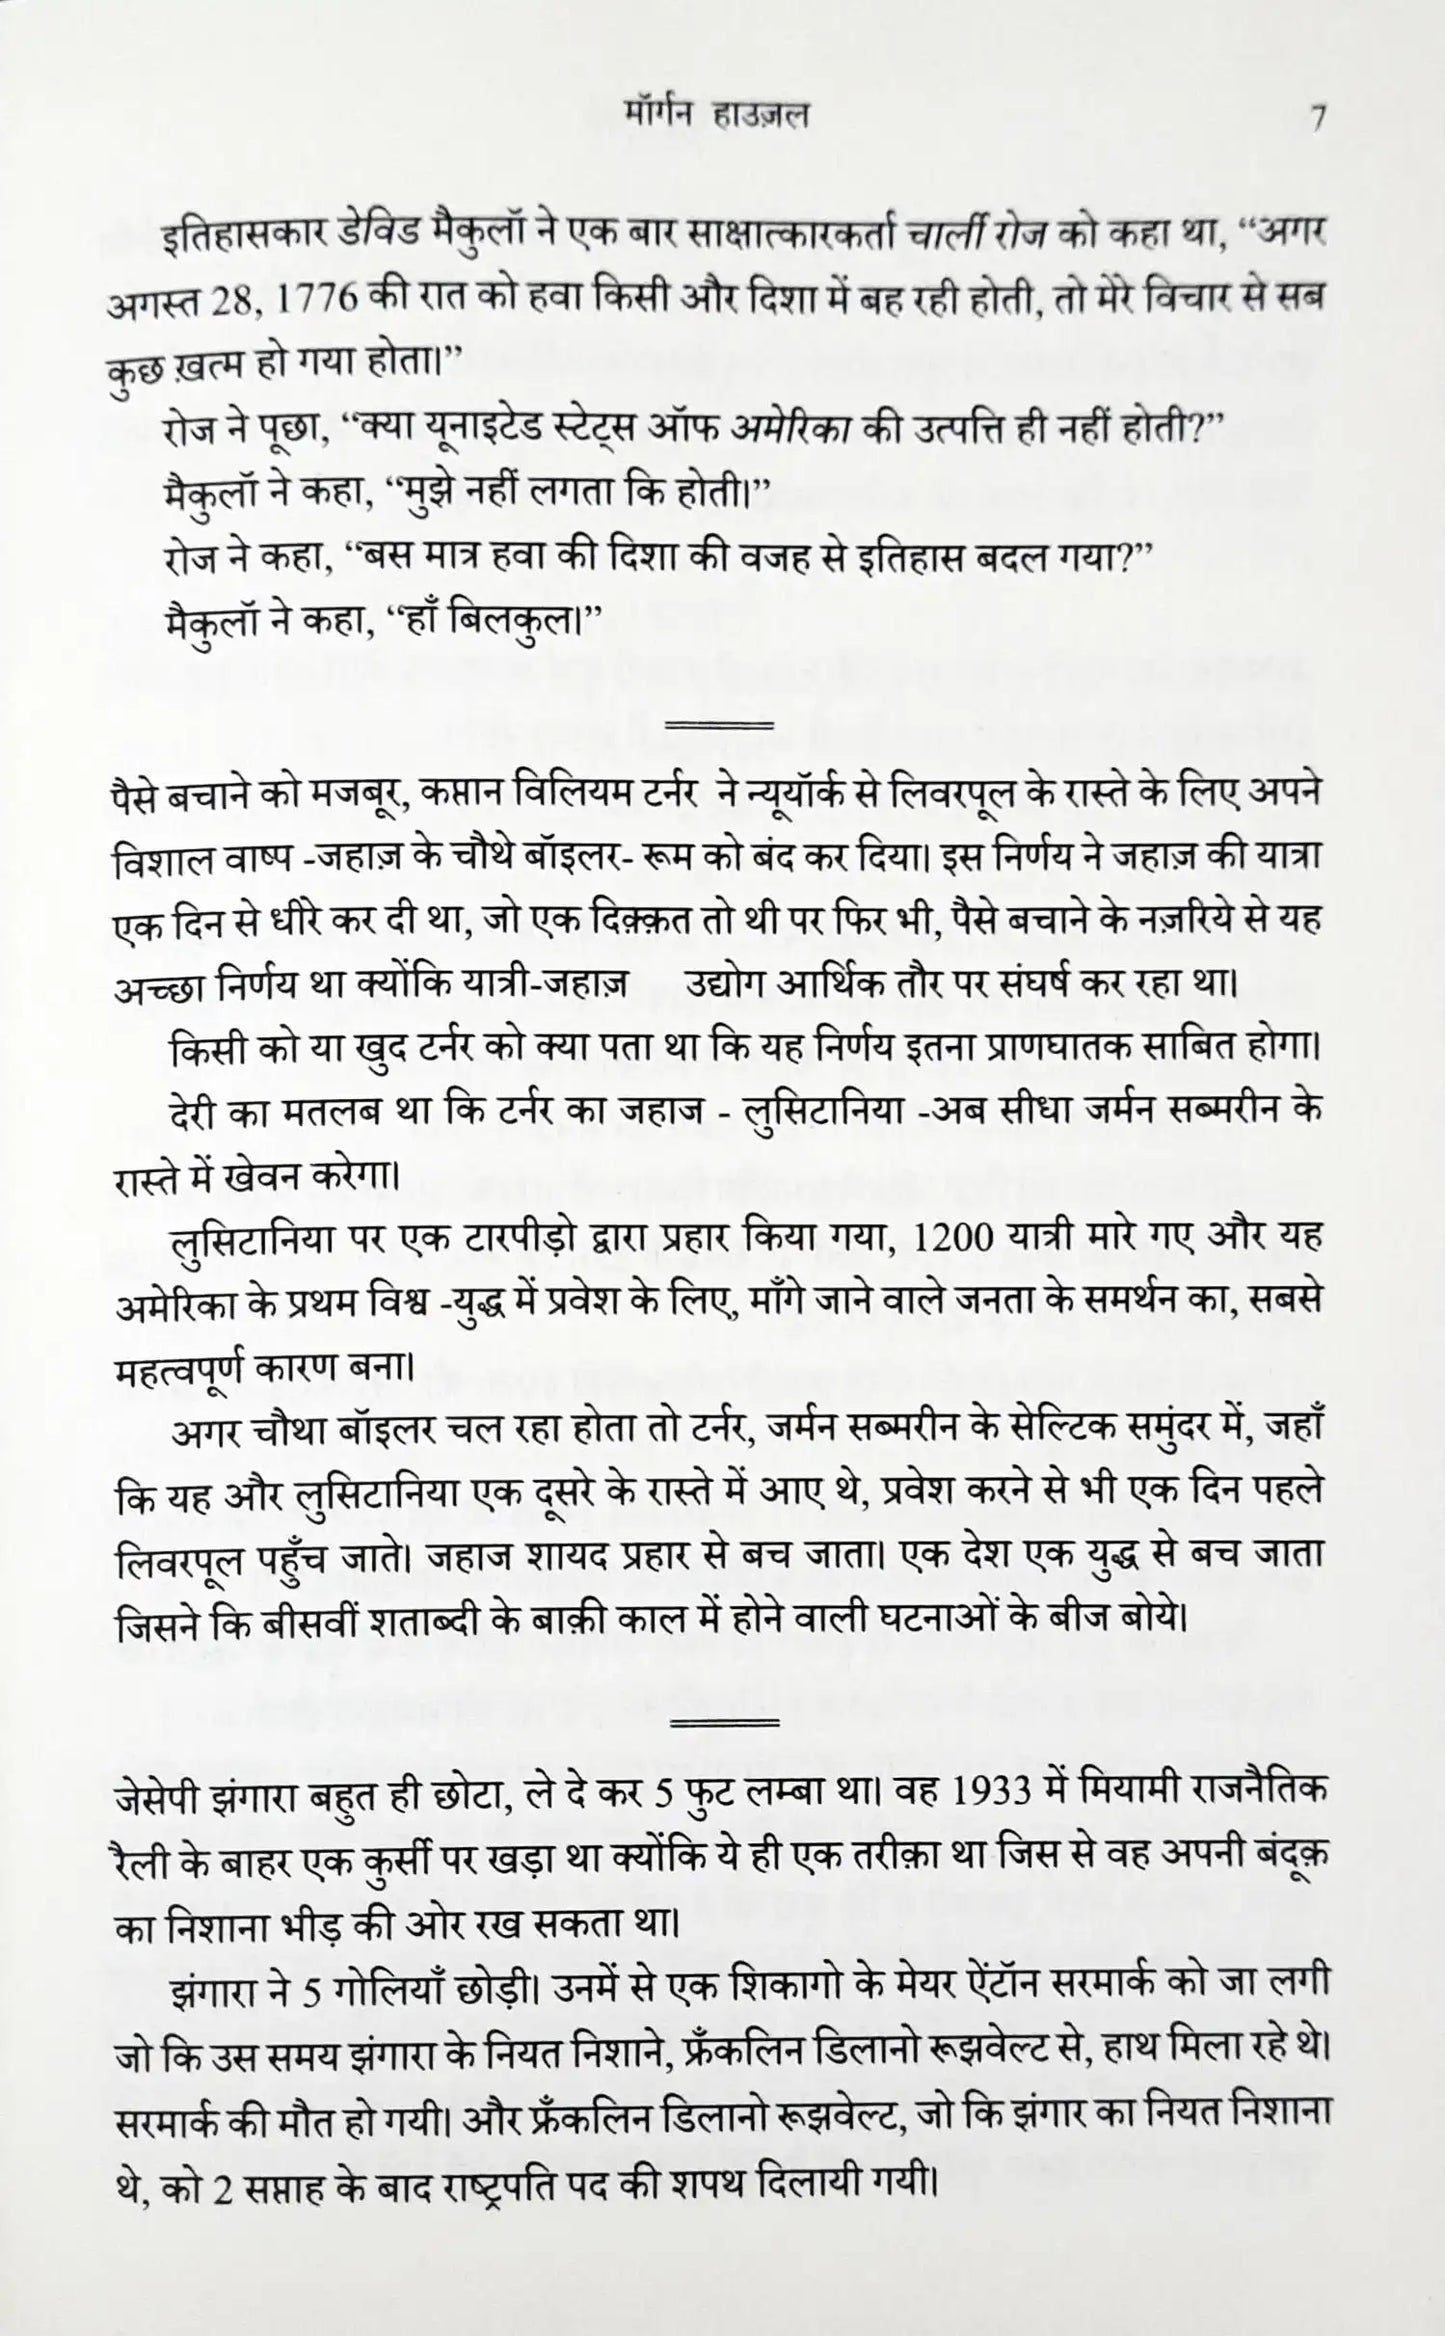 मॉर्गन हाउज़ल 7
इतिहासकार डेविड मैकुलॉ ने एक बार साक्षात्कारकर्ता चार्ली रोज को कहा था, “अगर
अगस्त 28, 1776 की रात को हवा किसी और दिशा में बह रही होती, तो मेरे विचार से सब
कुछ ख़त्म हो गया होता।”
रोज ने पूछा, “क्या यूनाइटेड स्टेट्स ऑफ अमेरिका की उत्पत्ति ही नहीं होती?”
मैकुलॉ ने कहा, “मुझे नहीं लगता कि होती।”
रोज ने कहा, “बस मात्र हवा की दिशा की वजह से इतिहास बदल गया?”
मैकुलॉ ने कहा, “हाँ बिलकुल।”
पैसे बचाने को मजबूर, कप्तान विलियम टर्नर ने न्यूयॉर्क से लिवरपूल के रास्ते के लिए अपने
विशाल वाष्प -जहाज़ के चौथे बॉइलर- रूम को बंद कर दिया। इस निर्णय ने जहाज़ की यात्रा
एक दिन से धीरे कर दी था, जो एक दिक़्क़त तो थी पर फिर भी, पैसे बचाने के नज़रिये से यह
अच्छा निर्णय था क्योंकि यात्री-जहाज़ उद्योग आर्थिक तौर पर संघर्ष कर रहा था।
किसी को या खुद टर्नर को क्या पता था कि यह निर्णय इतना प्राणघातक साबित होगा।
देरी का मतलब था कि टर्नर का जहाज - लुसिटानिया -अब सीधा जर्मन सब्मरीन के
रास्ते में खेवन करेगा।
लुसिटानिया पर एक टारपीड़ो द्वारा प्रहार किया गया, 1200 यात्री मारे गए और यह
अमेरिका के प्रथम विश्व -युद्ध में प्रवेश के लिए, माँगे जाने वाले जनता के समर्थन का, सबसे
महत्वपूर्ण कारण बना।
अगर चौथा बॉइलर चल रहा होता तो टर्नर, जर्मन सब्मरीन के सेल्टिक समुंदर में, जहाँ
कि यह और लुसिटानिया एक दूसरे के रास्ते में आए थे, प्रवेश करने से भी एक दिन पहले
लिवरपूल पहुँच जाते। जहाज शायद प्रहार से बच जाता। एक देश एक युद्ध से बच जाता
जिसने कि बीसवीं शताब्दी के बाक़ी काल में होने वाली घटनाओं के बीज बोये।
जेसेपी झंगारा बहुत ही छोटा, ले दे कर 5 फुट लम्बा था। वह 1933 में मियामी राजनैतिक
रैली के बाहर एक कुर्सी पर खड़ा था क्योंकि ये ही एक तरीक़ा था जिस से वह अपनी बंदूक़
का निशाना भीड़ की ओर रख सकता था।
झंगारा ने 5 गोलियाँ छोड़ी। उनमें से एक शिकागो के मेयर ऐंटॉन सरमार्क को जा लगी
जो कि उस समय झंगारा के नियत निशाने, फ्रँकलिन डिलानो रूझवेल्ट से, हाथ मिला रहे थे।
सरमार्क की मौत हो गयी। और फ्रँकलिन डिलानो रूझवेल्ट, जो कि झंगार का नियत निशाना
थे, को 2 सप्ताह के बाद राष्ट्रपति पद की शपथ दिलायी गयी।